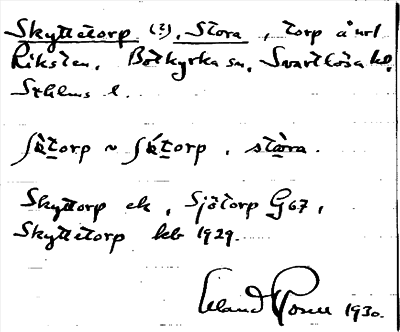 Skyttetorp (?), Stora, torp å url
Riksten. Botkyrka sn, Svartlösa hd.
Sthlms l.
ʃɷ̀torp ~ ʃɷ́torp. stòra.
Skyttorp ek, Sjötorp G67,
Skyttetorp kb 1929.
Erland 1930.